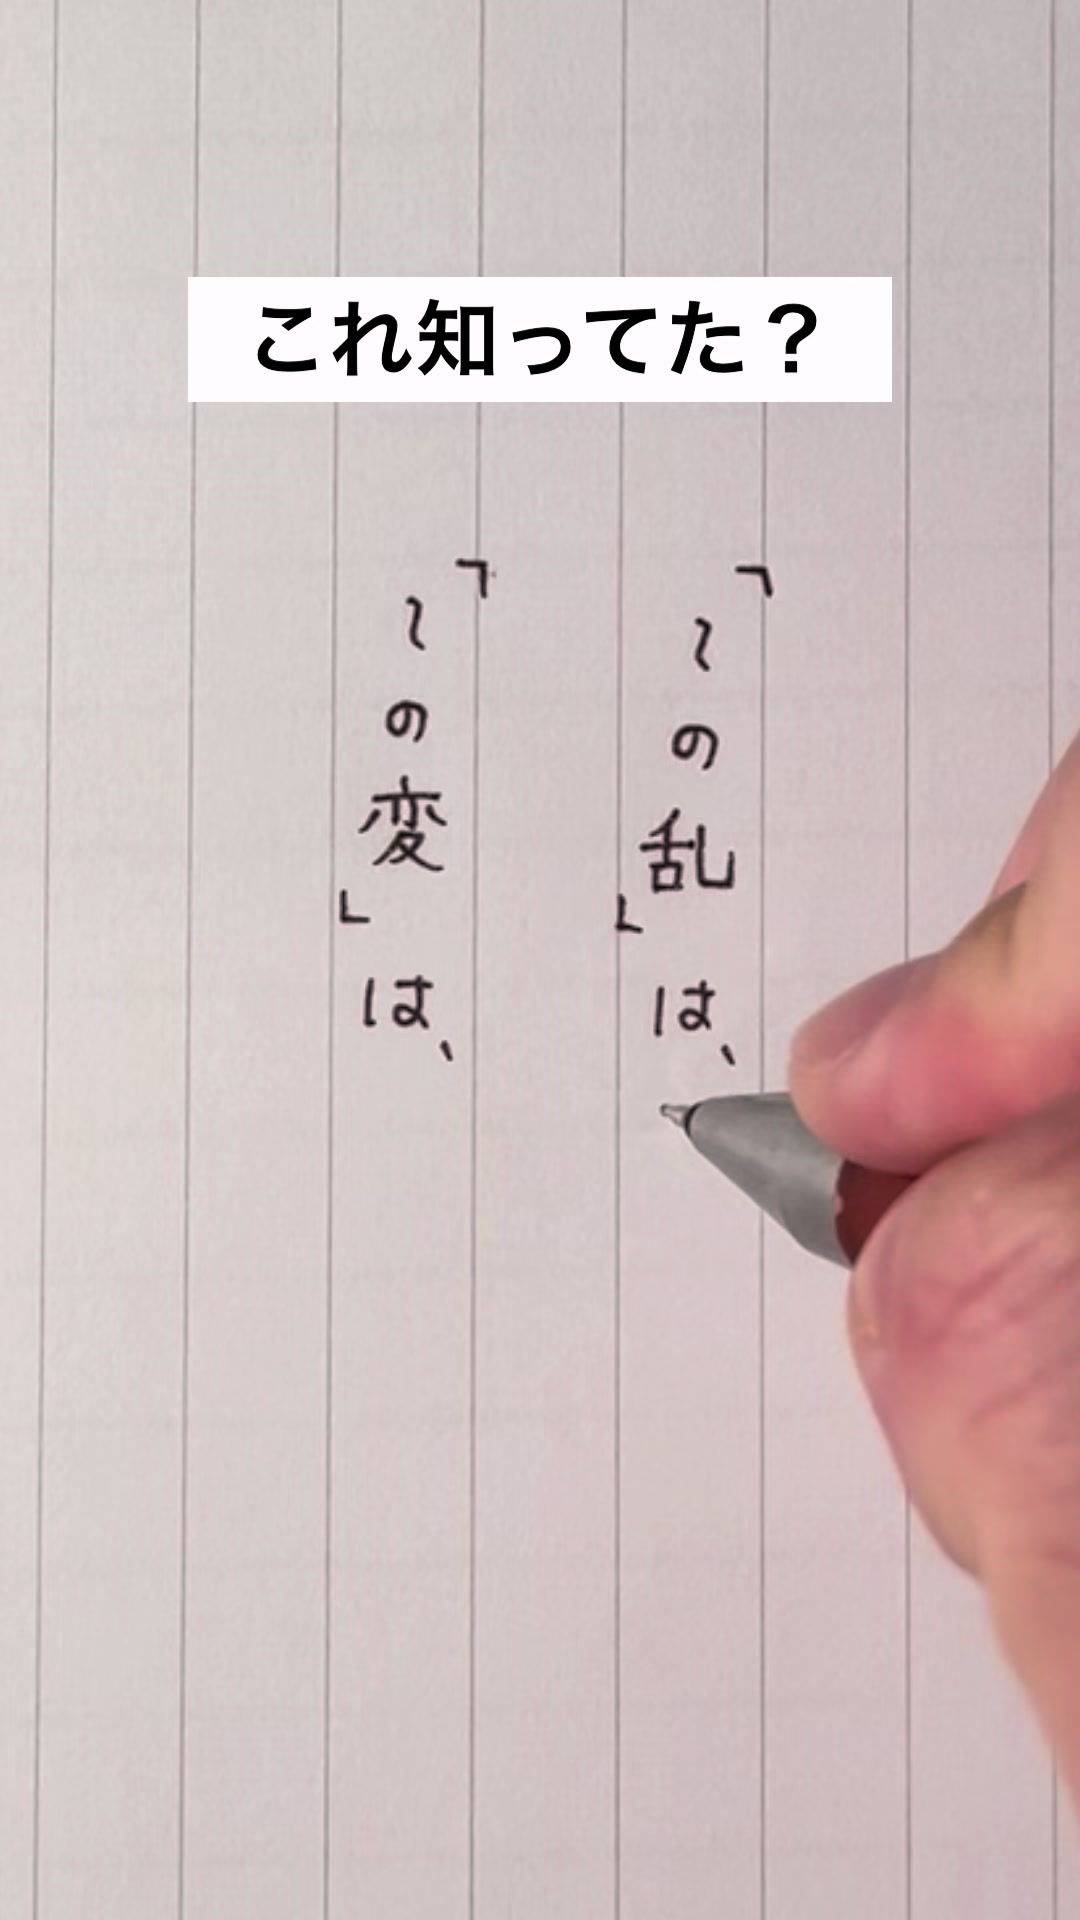 これ知ってた？
「〜の乱」は、
「〜の変」は、